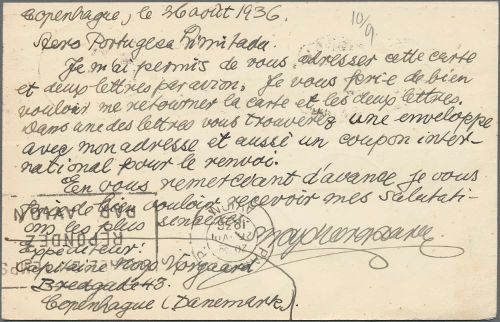 Copenhague, le 26 août 1936.
10/9.
Aero Portugesa Limitada.
Je m'ai permis de vous adresser cette carte
et deux lettres par avion. Je vous prie de bien
vouloir me retourner la carte et les deux lettres.
Dans une des lettres vous trouverez une enveloppe
avec mon adresse et aussi un coupon inter-
national pour le renvoi.
En vous remerciant d'avance je vous
prie de bien vouloir recevoir mes salutati-
ons les plus sincères.
RÉPONDEZ
PAR AVION
Expediteur:
Capitaine
Bredgade 43.
Copenhague (Danemark).